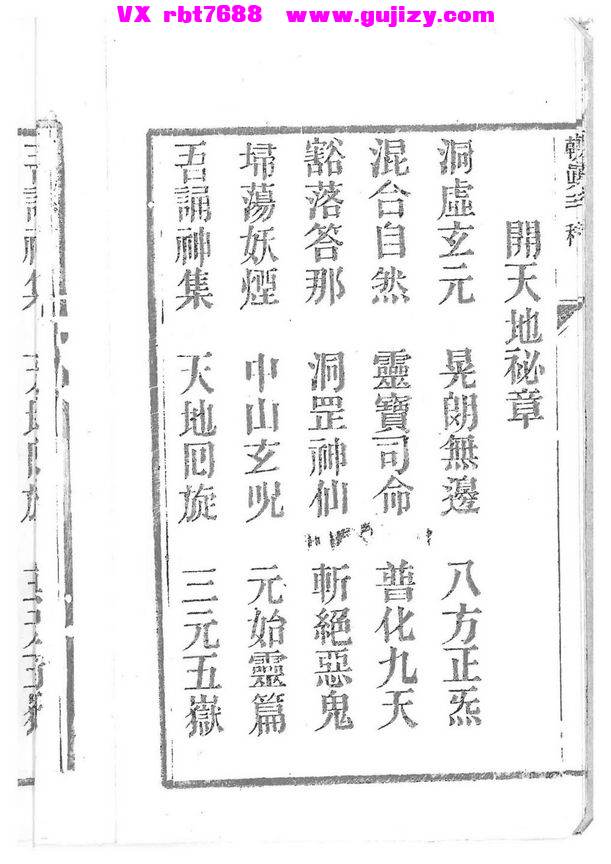 VX rbt7688 www.gujizy.com
開天地祕章
洞虛玄元 晃朗無邊 八方正炁
混合自然 靈寶司命 普化九天
豁落答那 洞罡神仙 斬絕惡鬼
埽蕩妖煙 中山玄呪 元始靈篇
吾誦神集 天地回旋 三元五嶽